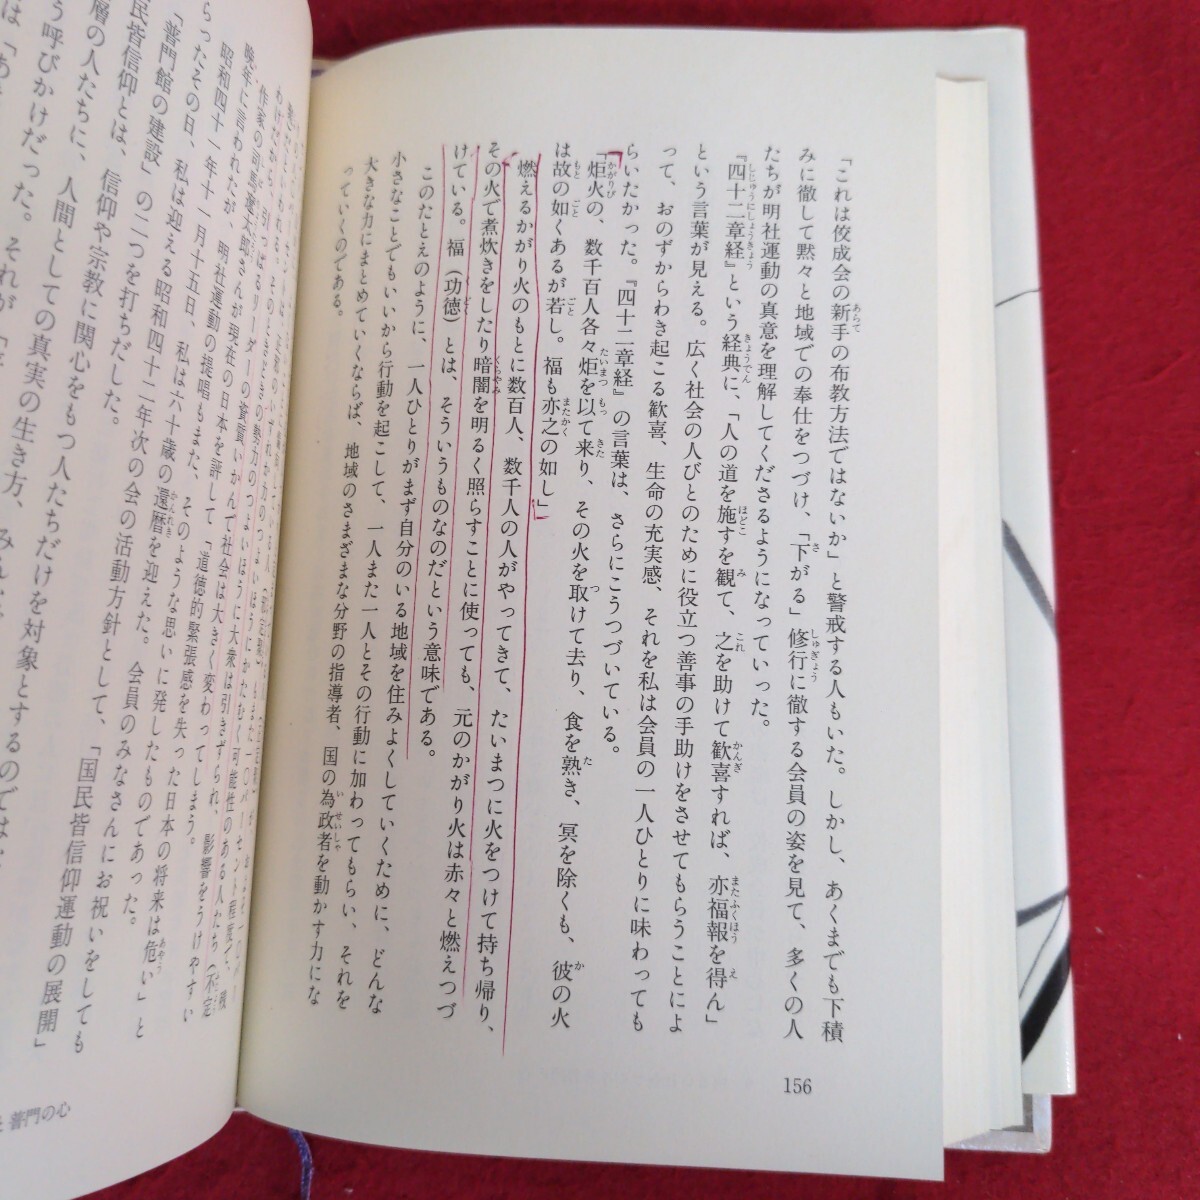 「これは佼成会の新手の布教方法ではないか」と警戒する人もいた。しかし、あくまでも下積
みに徹して黙々と地域での奉仕をつづけ、「下がる」修行に徹する会員の姿を見て、多くの人
たちが明社運動の真意を理解してくださるようになっていった。
『四十二章経』という経典に、「人の道を施すを観て、之を助けて歓喜すれば、亦福報を得ん」
という言葉が見える。広く社会の人びとのために役立つ善事の手助けをさせてもらうことによ
って、おのずからわき起こる歓喜、生命の充実感、それを私は会員の一人ひとりに味わっても
らいたかった。『四十二章経』の言葉は、さらにこうつづいている。
「炬火の、数千百人各々炬を以て来り、その火を取けて去り、食を熟き、冥を除くも、彼の火
は故の如くあるが若し。福も亦之の如し」
燃えるかがり火のもとに数百人、数千人の人がやってきて、たいまつに火をつけて持ち帰り、
その火で煮炊きをしたり暗闇を明るく照らすことに使っても、元のかがり火は赤々と燃えつづ
けている。福（功徳）とは、そういうものなのだという意味である。
このたとえのように、一人ひとりがまず自分のいる地域を住みよくしていくために、どんな
小さなことでもいいから行動を起こして、一人また一人とその行動に加わってもらい、それを
大きな力にまとめていくならば、地域のさまざまな分野の指導者、国の為政者を動かす力にな
っていくのである。
156
わけだから、引っぱるリーダーの資質いかんで社会は大きく変わってしまう。
作家の司馬遼太郎さんが現在の日本を評して「道徳的緊張感を失った日本の将来は危い」と
晩年に言われたが、明社運動の提唱もまた、そのような思いに発したものであった。
昭和四十一年十一月十五日、私は六十歳の還暦を迎えた。会員のみなさんにお祝いをしても
らったその日、私は迎える昭和四十二年次の会の活動方針として、「国民皆信仰運動の展開」
「普門館の建設」の二つを打ちだした。
民皆信仰とは、信仰や宗教に関心をもつ人たちだけを対象とするのでは
層の人たちに、人間としての真実の生き方、
う呼びかけだった。それが
普門の心